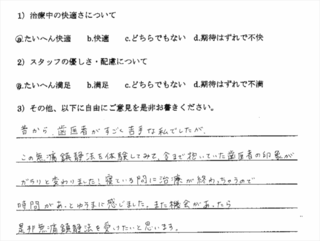 1）治療中の快適さについて
a.たいへん快適　b.快適　c.どちらでもない　d.期待はずれで不快
2）スタッフの優しさ・配慮について
a.たいへん満足　b.満足　c.どちらでもない　d.期待はずれで不満
3）その他、以下に自由にご意見を是非お書きください。
昔から、歯医者がすごく苦手な私でしたが、
この無痛鎮静法を体験してみて、今まで抱いていた歯医者の印象が
ガラリと変わりました！寝ている間に治療が終わっちゃうので
時間があっとゆうまに感じました。また機会があったら
是非無痛鎮静法を受けたいと思います。